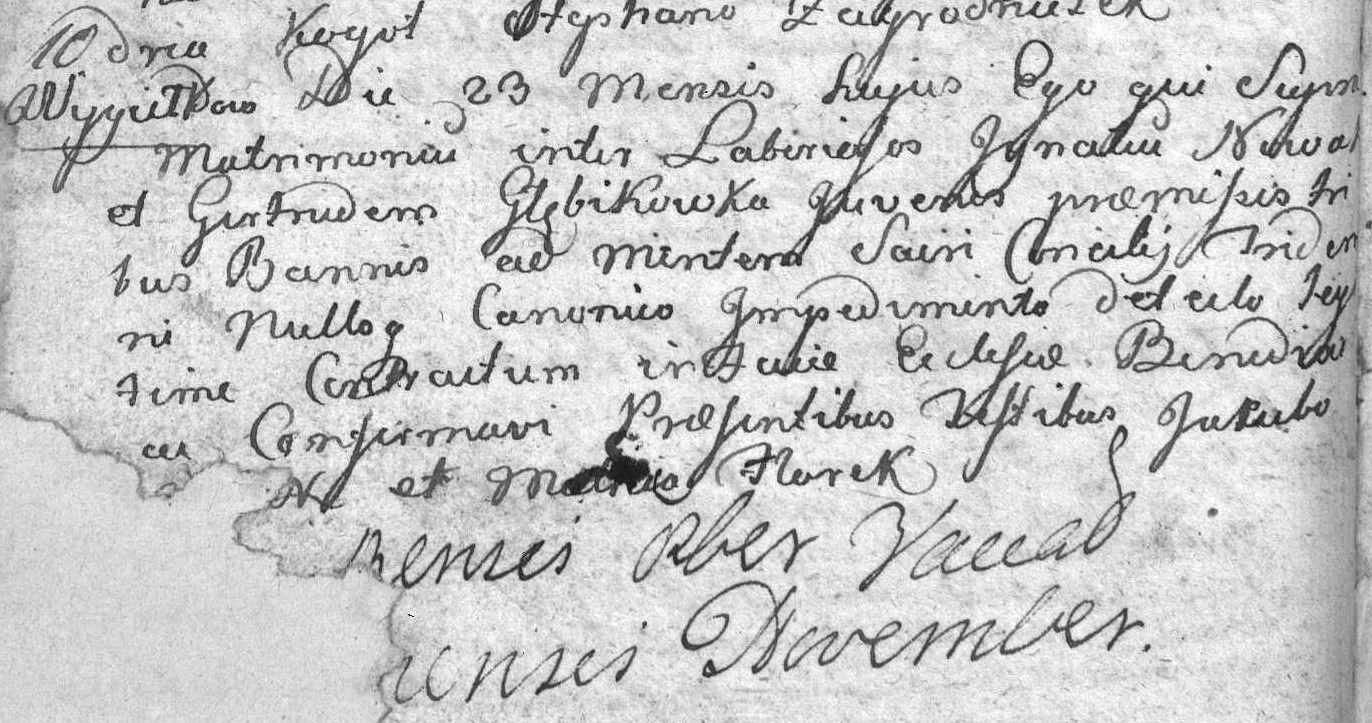 dria Kogot Stephano Zagrodniczek
Die 23 Mensis hujus Ego qui Supra
Matrimoniū inter Laboriosos Ignatiū Nowak
et Gertrudem Juvenes præmissis tri
bus Bannis ad Mentem Sacri Concilij Triden
ni Nulloq Canonico Impedimento detecto legi
time Contractum in Facie Ecclesiæ Benedixi
ac Confirmavi Præsentibus Testibus Jakubo
N et Florek
Mensis 8ber Vacat
ensis November.